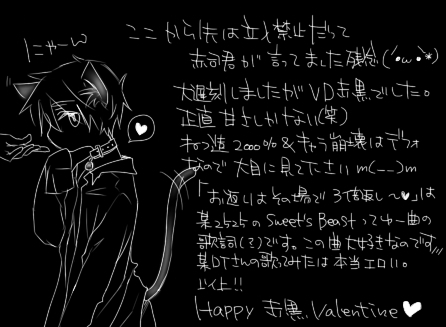 にゃーん
ここから先は立ち禁止だって
赤司君が言ってました残念(´・ω・`*)
大遅刻しましたがVD赤黒でした。
正直甘さしかけない(笑)
ねつ造2000%&キャラ崩壊はデフォ
なので大目に見て下さいm(__)m
「お返しはその場で3倍返し〜♥」は
某2525のSweet's Beastって曲の
歌詞(?)です。この曲大好きなのです///
某DTさんの歌ってみたは本当エロい。
以上!!
Happy 赤黒 Valentine♥